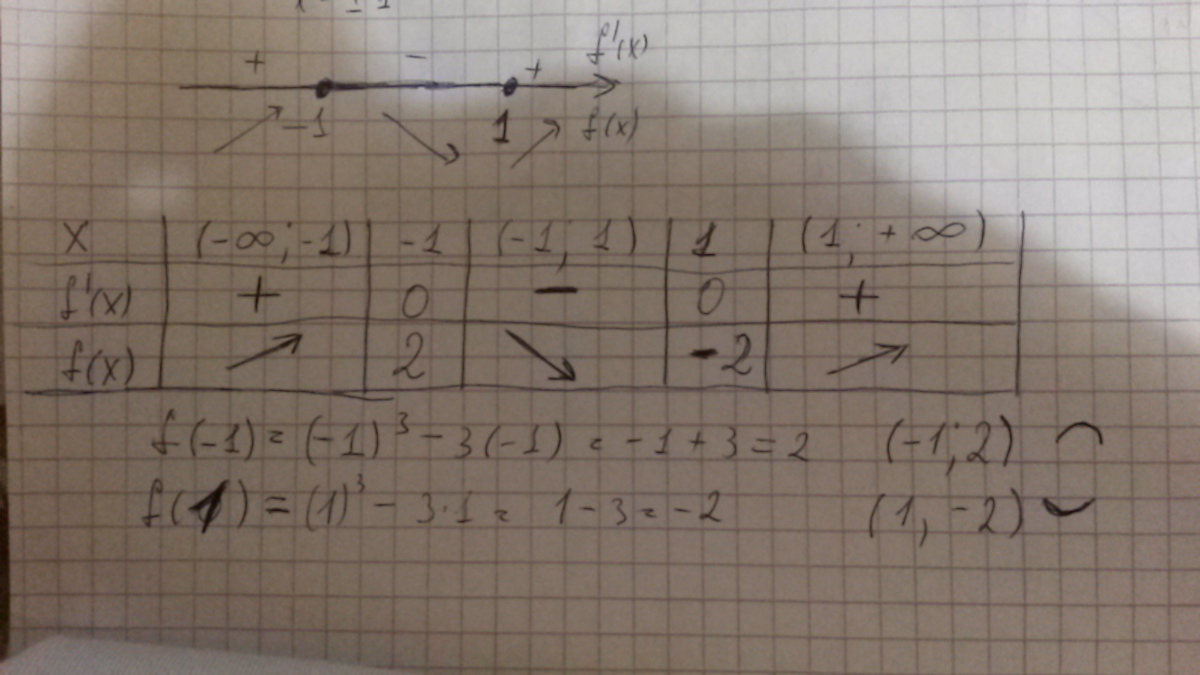 + - + f'(x)
-1 1 f(x)
x (-∞; -1) -1 (-1; 1) 1 (1; +∞)
f'(x) + 0 - 0 +
f(x) ↗ 2 ↘ -2 ↗
f(-1) = (-1)³ - 3(-1) = -1 + 3 = 2 (-1; 2)
f(1) = (1)³ - 3·1 = 1 - 3 = -2 (1, -2)